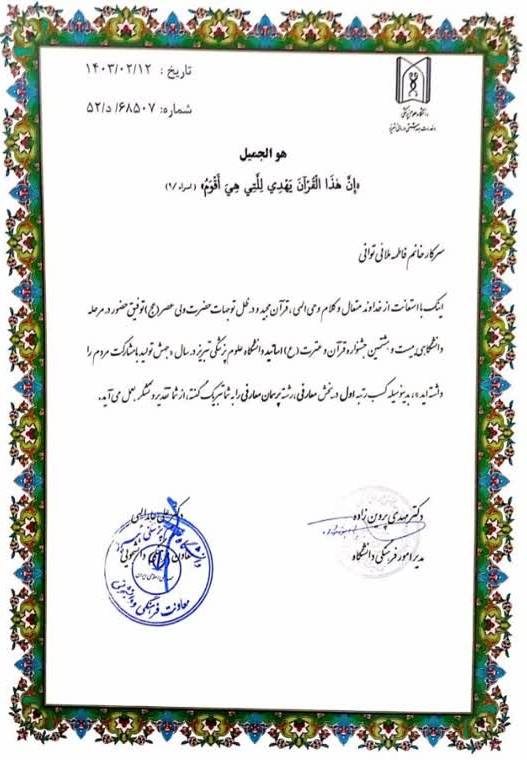 دانشگاه علوم پزشکی
تاریخ : ۱۴۰۳/۰۲/۱۲
شماره: ۵۲/د/۶۸۵۰۷
هو الجمیل
«إِنَّ هَذَا الْقُرْآنَ يَهْدِي لِلَّتِي هِيَ أَقْوَمُ» (اسراء /۹)
سرکار خانم فاطمه ملائی توانی
اینک با استعانت از خداوند متعال و کلام وحی الهی، قرآن مجید و در ظل توجهات حضرت ولی عصر (عج) توفیق حضور در مرحله
دانشگاهی بیست و هشتمین جشنواره قرآن و عترت (ع) اساتید دانشگاه علوم پزشکی تبریز در سال «جهش تولید با مشارکت مردم» را
داشته اید، بدینوسیله کسب رتبه اول در بخش معارفی، رشته پرسمان معارفی را به شما تبریک گفته، از شما تقدیر و تشکر بعمل می آید.
دکتر مهدی پروین زاده
مدیر امور فرهنگی دانشگاه
دکتر علی
معاون فرهنگی دانشجویی
معاونت فرهنگی و دانشجویی